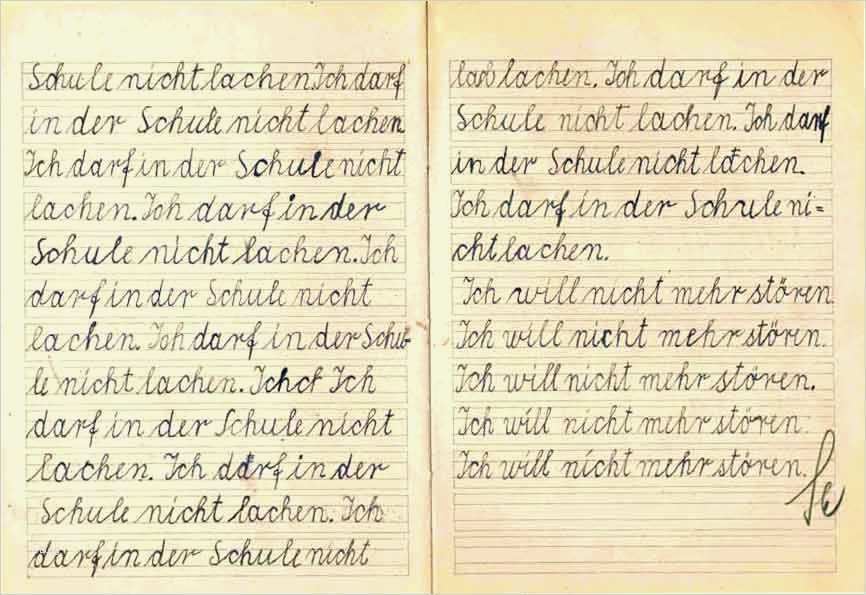 Schule nicht lachen. Ich darf
in der Schule nicht lachen
Ich darf in der Schule nicht
lachen. Ich darf in der
Schule nicht lachen. Ich
darf in der Schule nicht
lachen. Ich darf in der Schu-
le nicht lachen. Ich Ich
darf in der Schule nicht
lachen. Ich darf in der
Schule nicht lachen. Ich
darf in der Schule nicht
lachen. Ich darf in der
Schule nicht lachen. Ich darf
in der Schule nicht lachen.
Ich darf in der Schule ni=
cht lachen.
Ich will nicht mehr stören
Ich will nicht mehr stören.
Ich will nicht mehr stören.
Ich will nicht mehr stören.
Ich will nicht mehr stören.